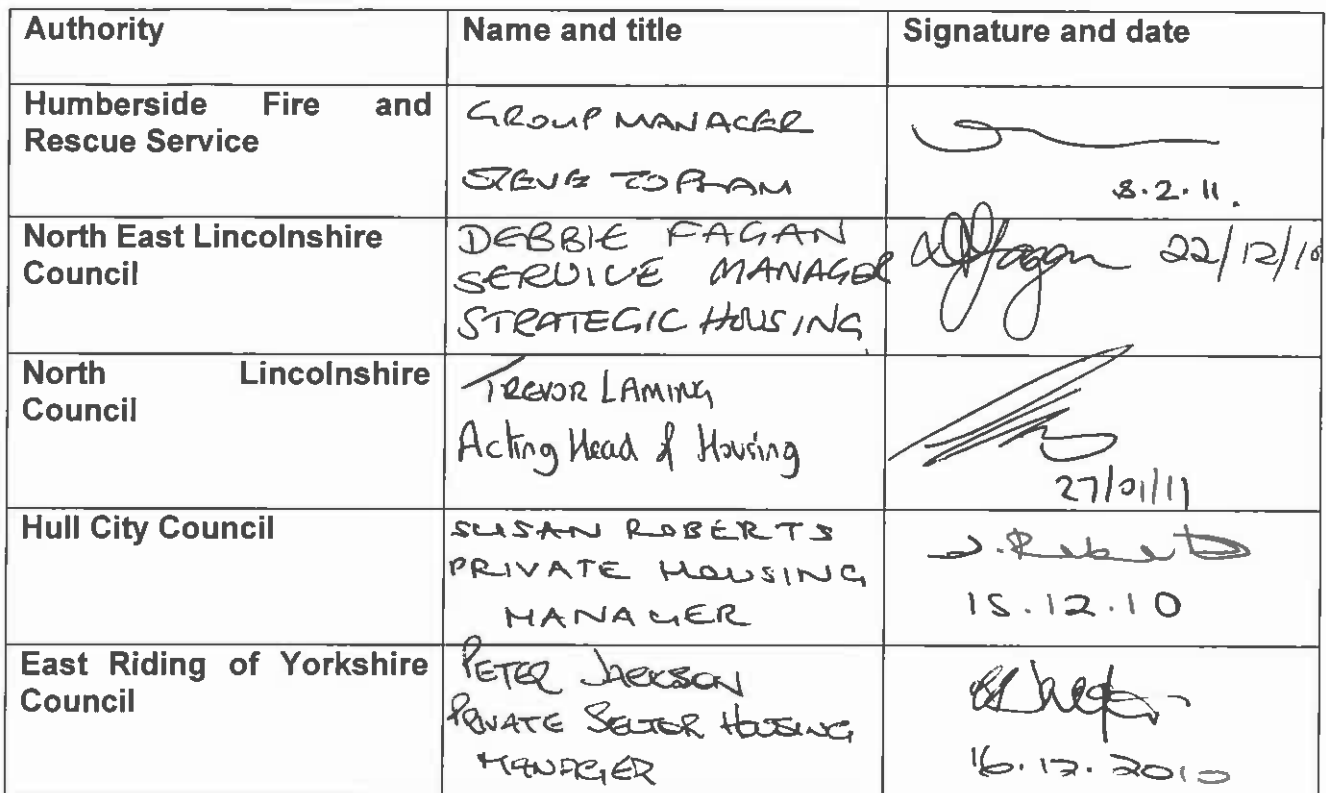 Authority
Name and title
Signature and date
Humberside Fire and
Rescue Service
GROUP MANAGER
STEVE TOPHAM
8.2.11.
North East Lincolnshire
Council
DEBBIE FAGAN
SERVICE MANAGER
STRATEGIC HOUSING
DFagan 22/12/10
North Lincolnshire
Council
TREVOR LAMING
Acting Head of Housing
27/01/11
Hull City Council
SUSAN ROBERTS
PRIVATE HOUSING
MANAGER
S. Roberts
15.12.10
East Riding of Yorkshire
Council
PETER JACKSON
PRIVATE SECTOR HOUSING
MANAGER
16.12.2010